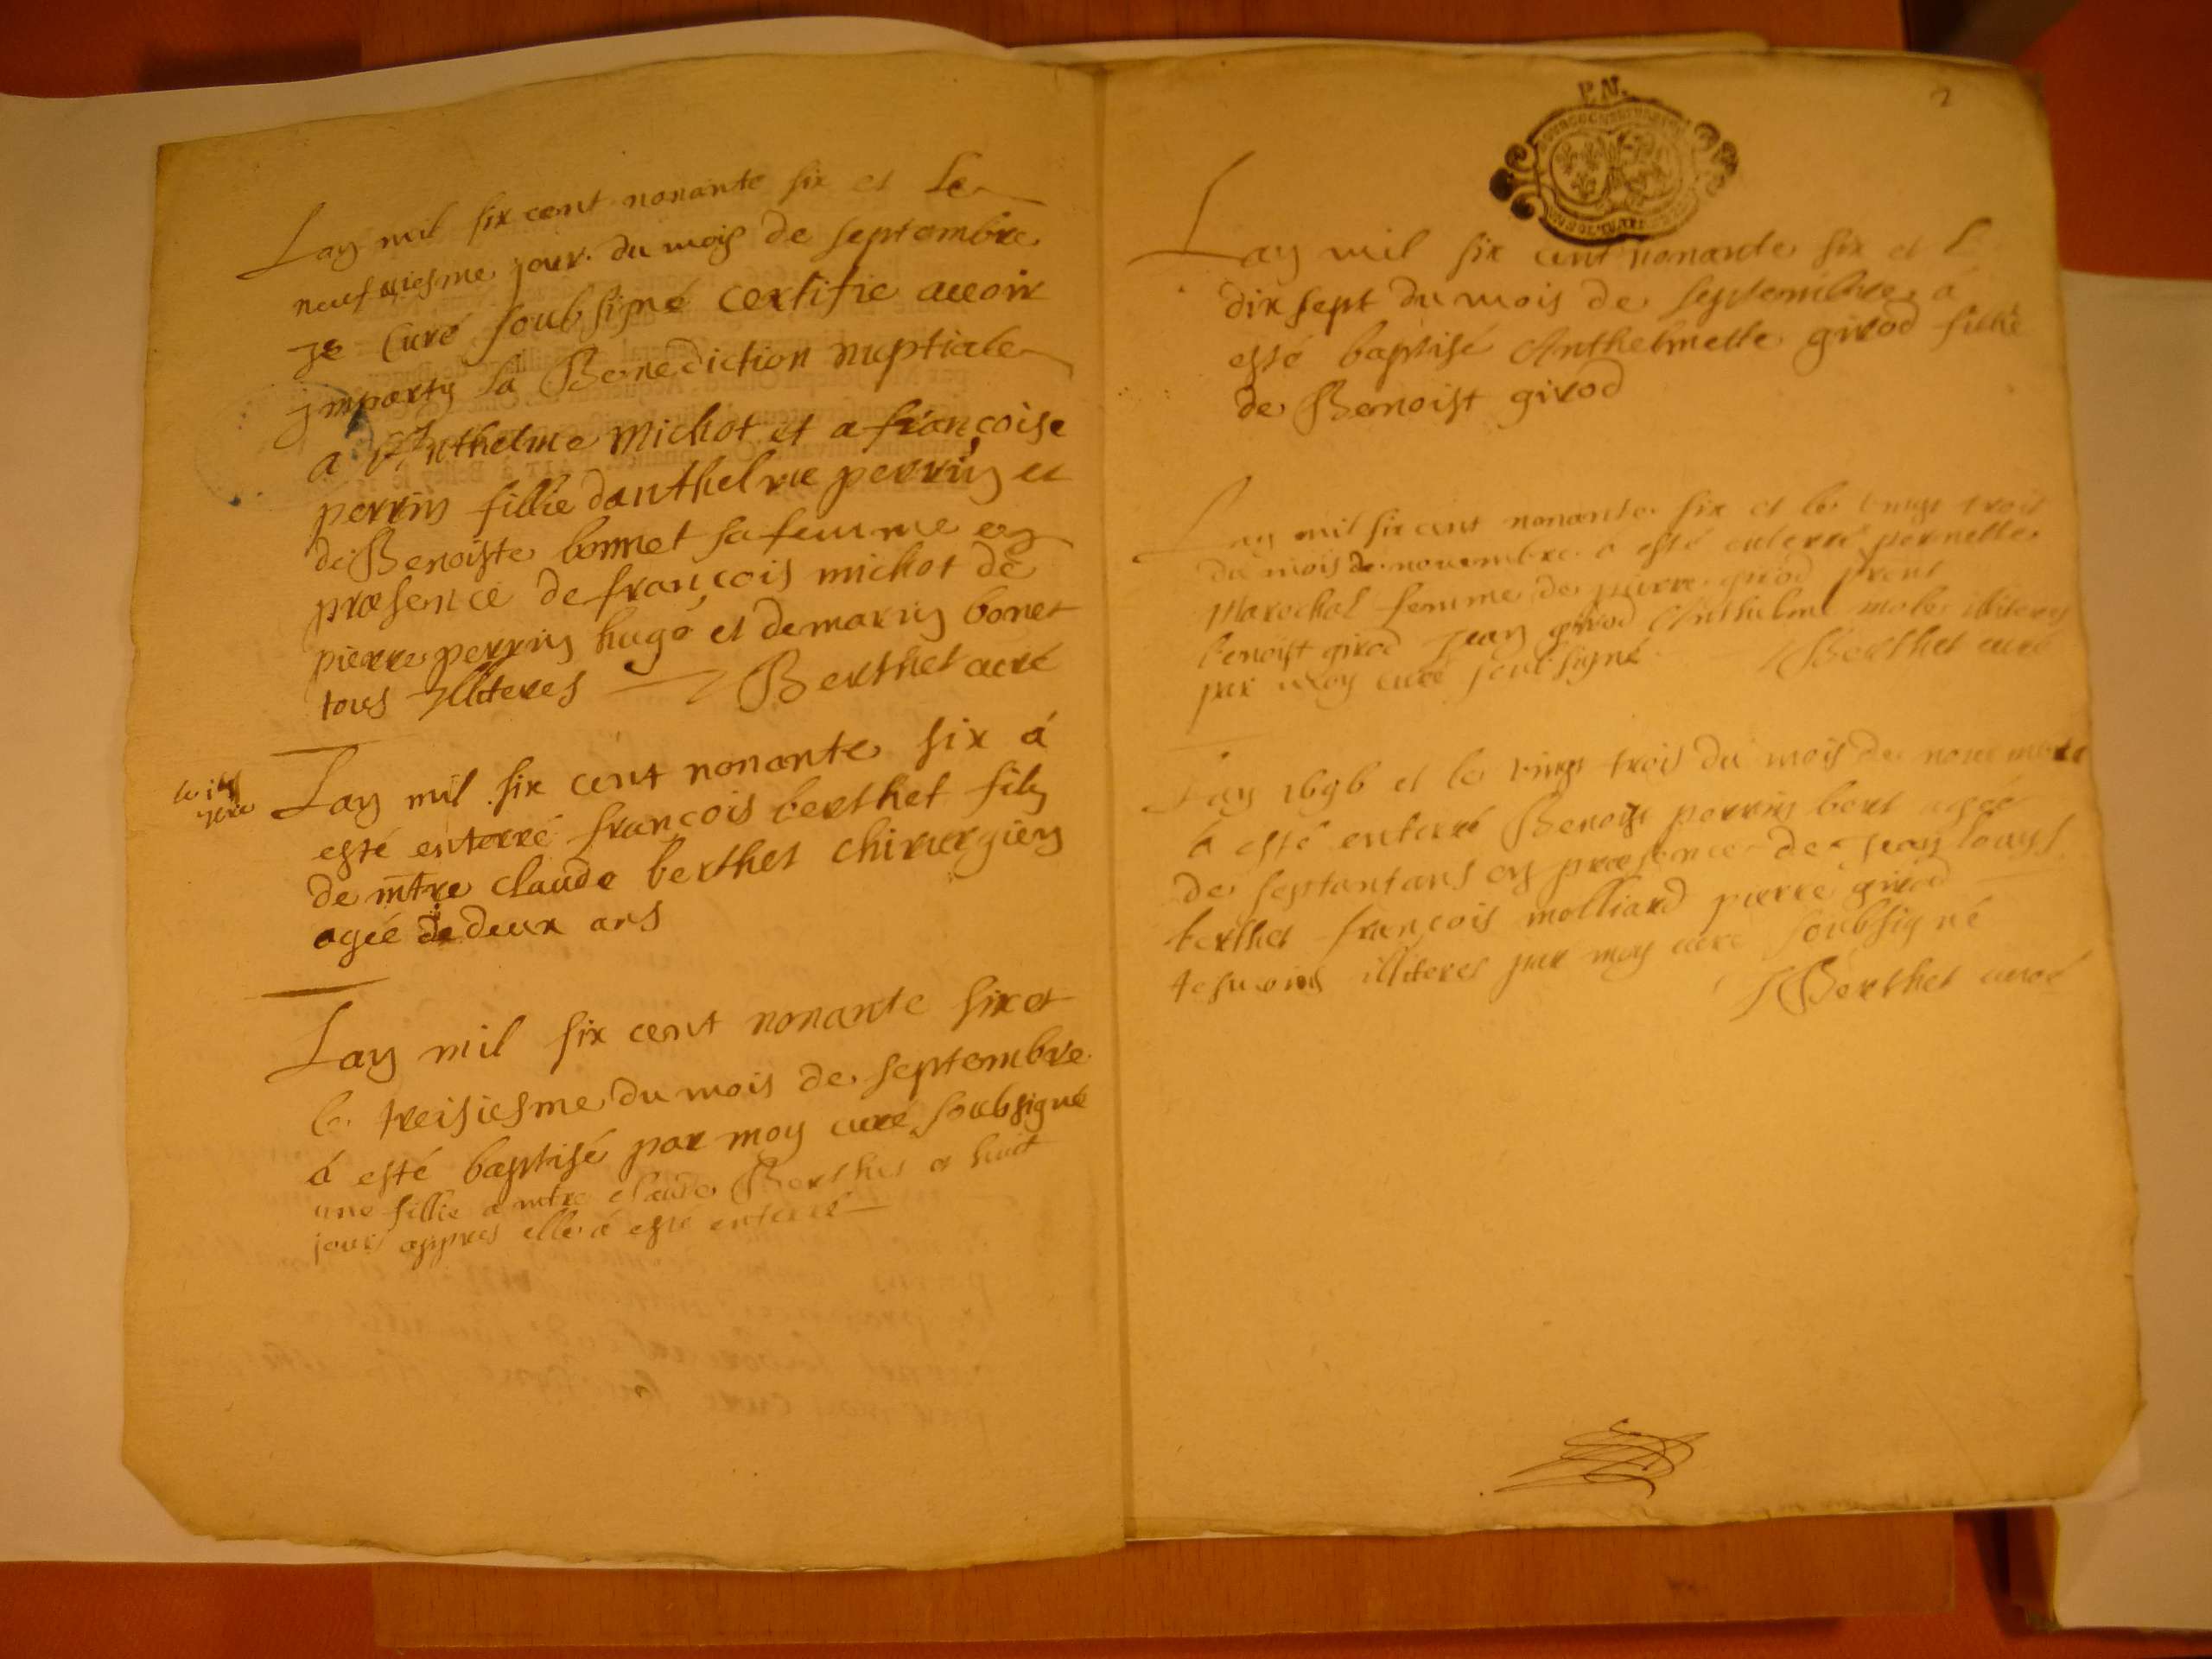 Lan mil six cent nonante six et le
neufviesme jour du mois de septembre
je curé soubsigné certifie avoir
imparty la Benediction nuptiale
a Anthelme Michot et a françoise
perrin fillie danthelme perrin et
de Benoiste bonnet sa femme en
præsence de françois michot de
pierre perrin hugo et de marin bonet
tous illiteres Berthet curé
Lan mil six cent nonante six á
esté enterré françois berthet filz
de mtre claude berthet chirurgien
agéé de deux ans
Lan mil six cent nonante six et
le treisiesme du mois de septembre
á esté baptisé par moy curé soubsigné
une fillie a mtre claude Berthet et huict
jours appres elle á esté enterré
P.N.
2
Lan mil six cent nonante six et l
dix sept du mois de septembre á
esté baptisé Anthelmette girod fillie
de Benoist girod
Lan mil six cent nonante six et le vingt trois
du mois de novembre á esté enterré pernette
Marechal femme de pierre girod
benoist girod jean girod Anthelme illiteres
par moy curé soubsigné Berthet curé
Lan 1696 et le vingt trois du mois de novembre
á esté enterré Benoist perrin bert agéé
de septant ans en præsence de Jean louys
berthet françois molliard pierre girod
tesmoins illiteres par moy curé soubsigné
Berthet curé